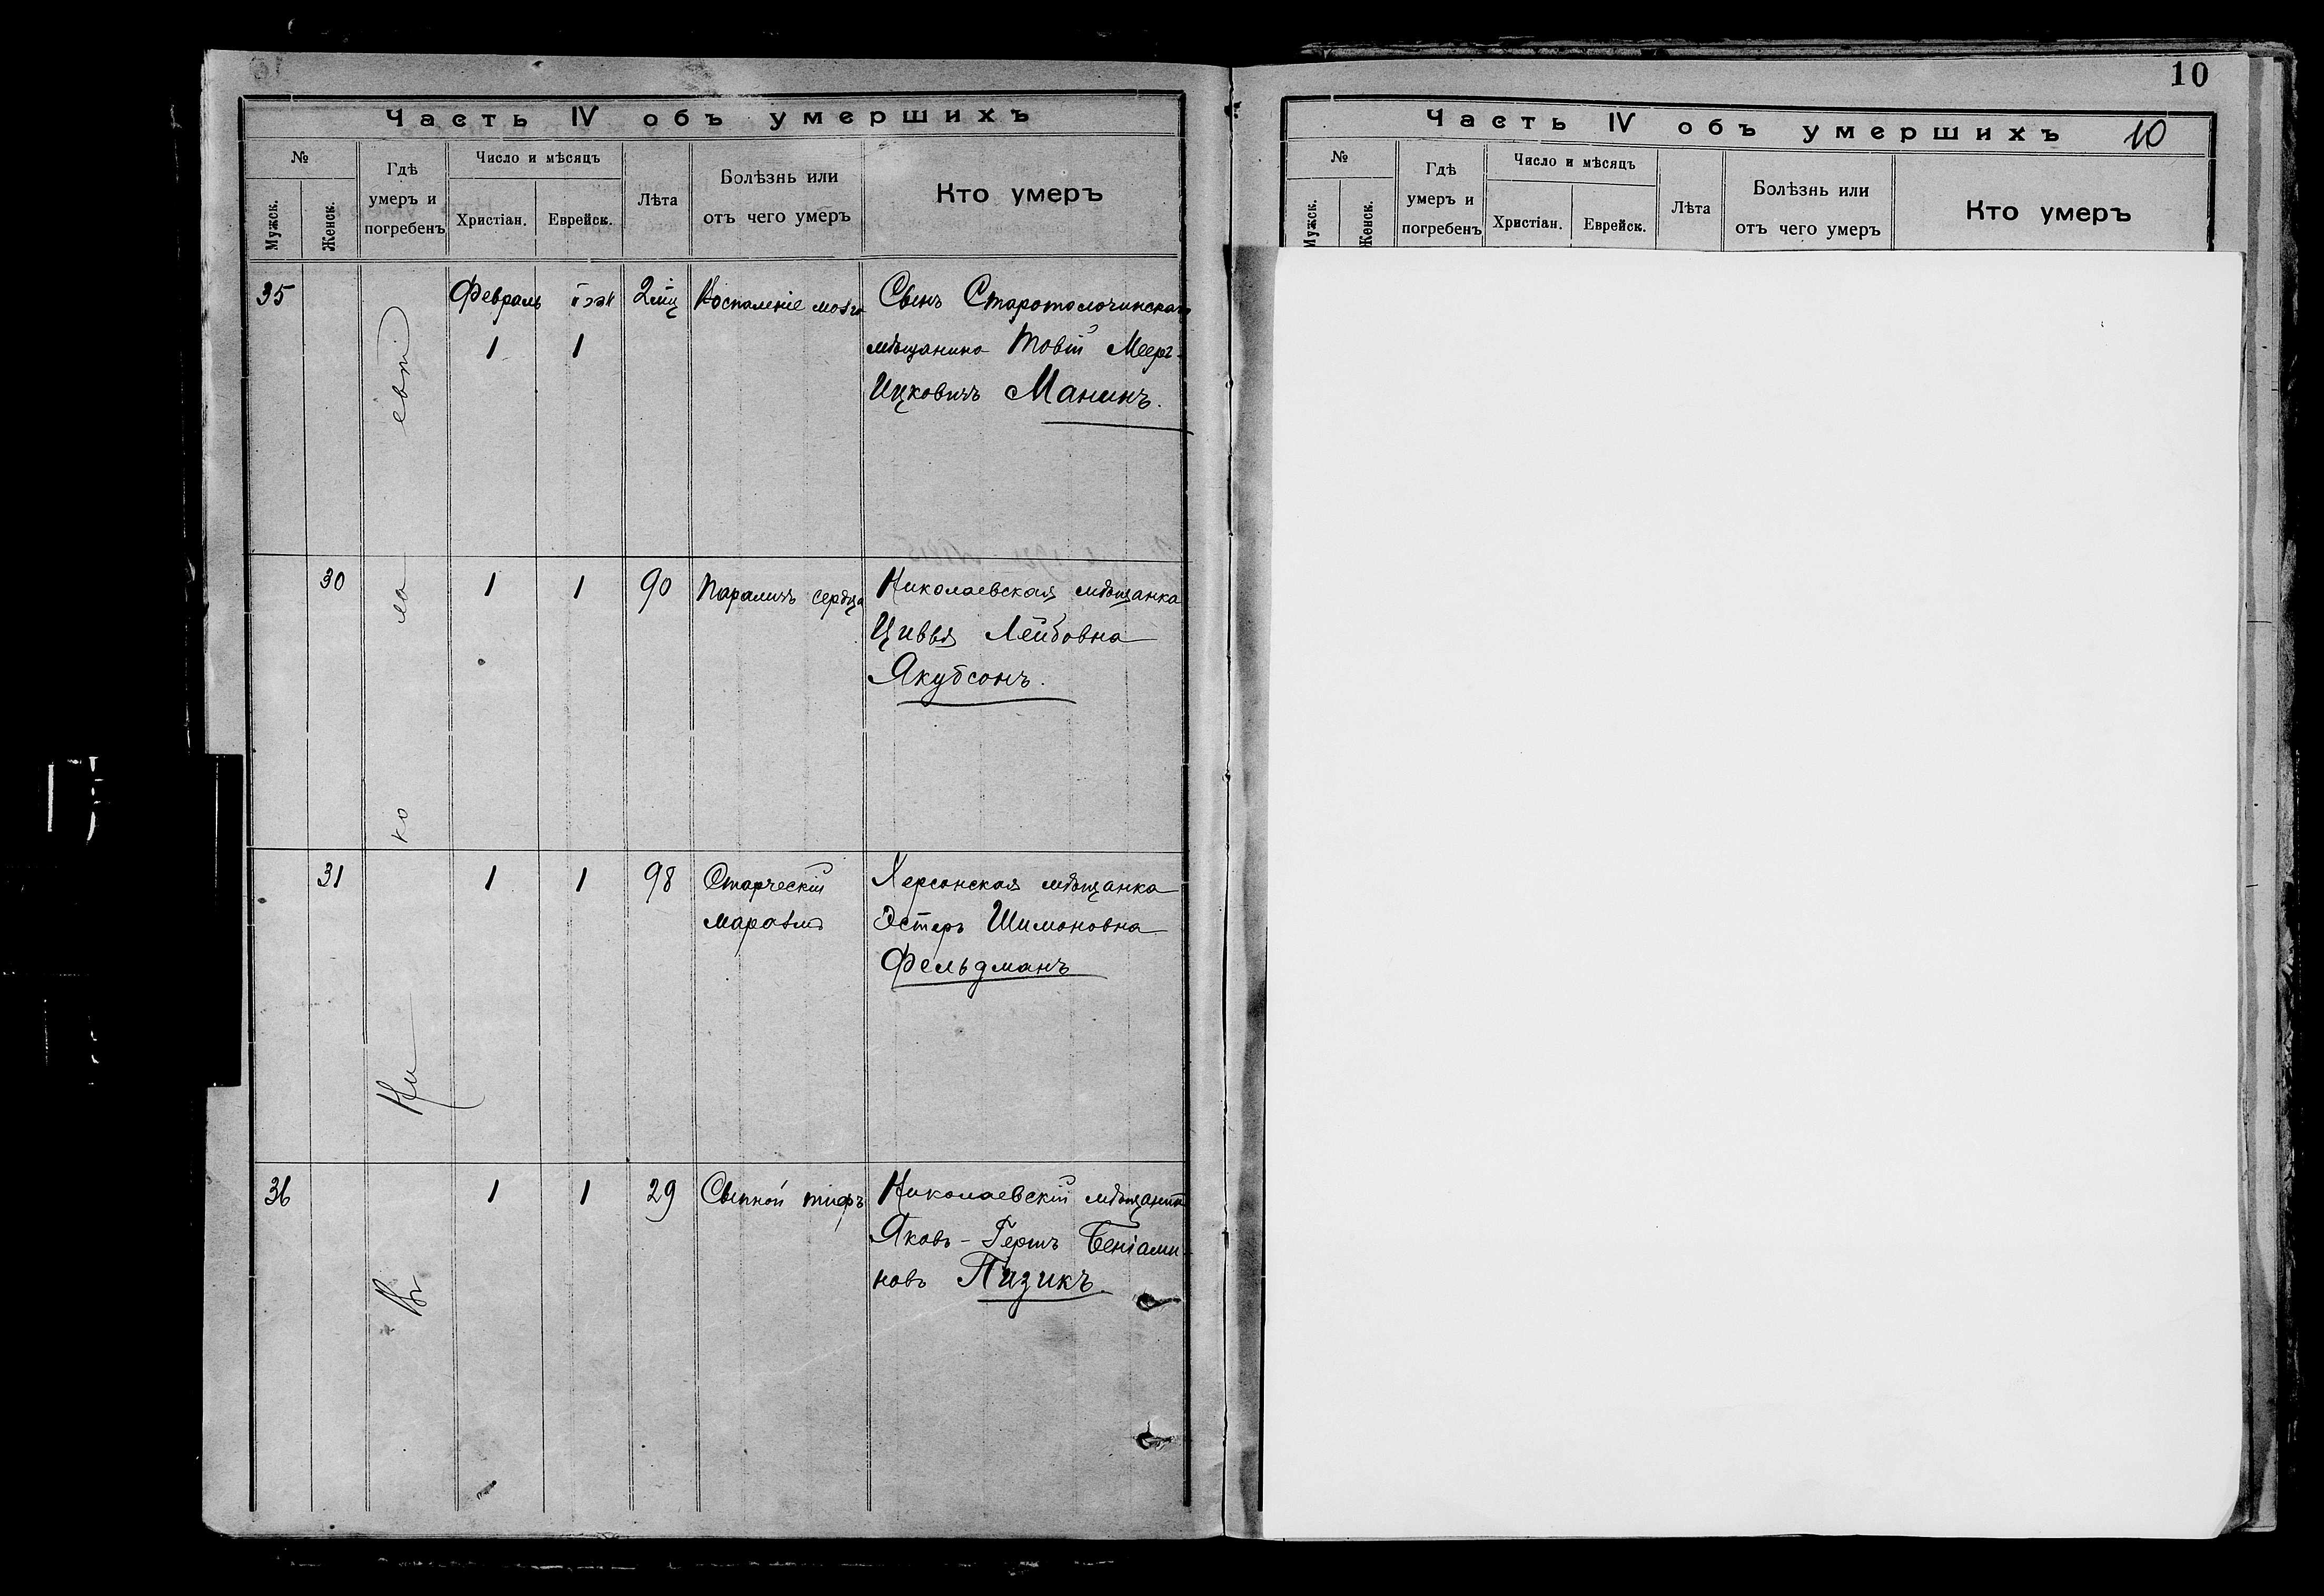 Часть IV объ умершихъ
№
Мужск.
Женск.
Гдѣ
умеръ и
погребенъ
Число и мѣсяцъ
Христіан.
Еврейск.
Лѣта
Болѣзнь или
отъ чего умеръ
Кто умеръ
35
Февраль
1
1
2 мц
Воспаленіе мозга
Сынъ Старотолочинскаго
мѣщанина Товій Меер-
Ицковичъ Манинъ.
30
1
1
90
Параличъ сердца
Николаевская мѣщанка
Цивья Лейбовна
Якубсонъ.
31
1
1
98
Старческій
маразмъ
Херсонская мѣщанка
Эстеръ Шимоновна
Фельдманъ
36
1
1
29
Сыпной тифъ
Николаевскій мѣщанинъ
Яковъ-Гершъ Беніами-
новъ Пизикъ.
Въ Николаевѣ
10
Часть IV объ умершихъ 10
№
Мужск.
Женск.
Гдѣ
умеръ и
погребенъ
Число и мѣсяцъ
Христіан.
Еврейск.
Лѣта
Болѣзнь или
отъ чего умеръ
Кто умеръ